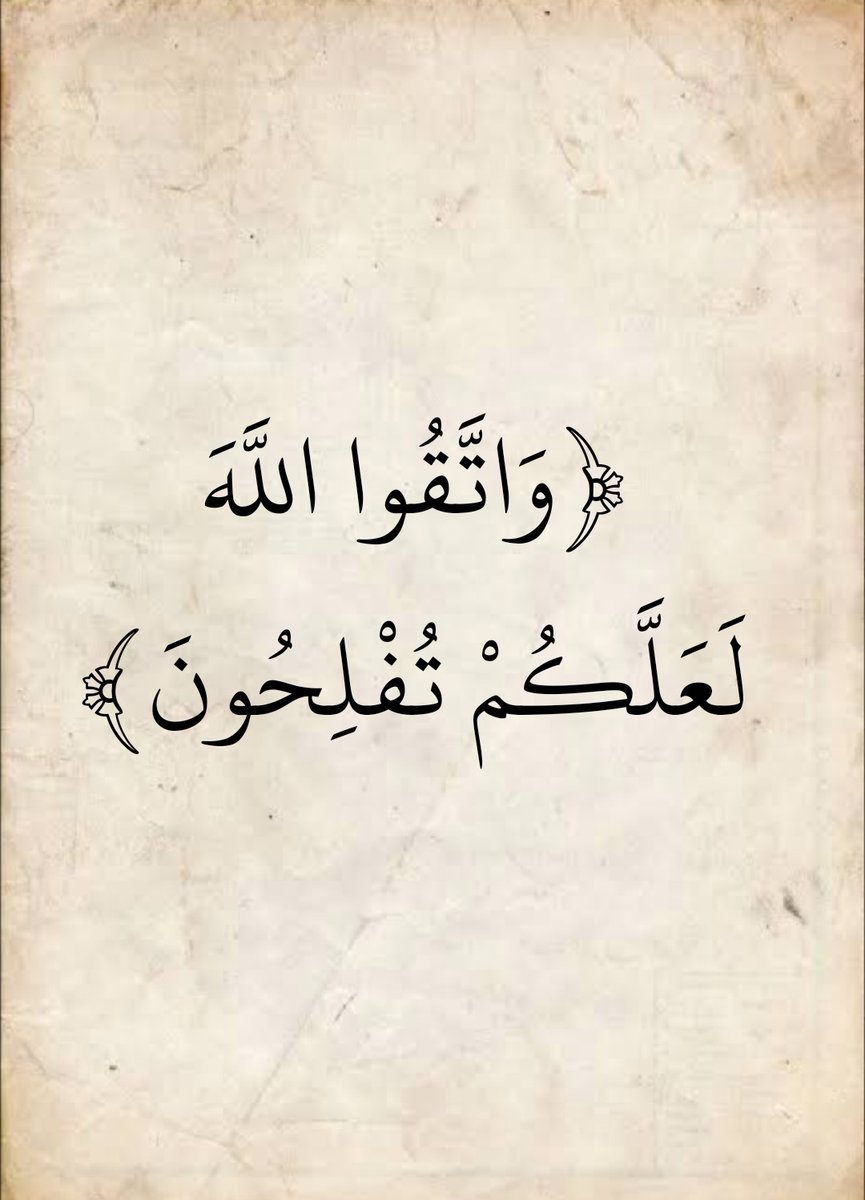 ﴿وَاتَّقُوا اللَّهَ
لَعَلَّكُمْ تُفْلِحُونَ﴾